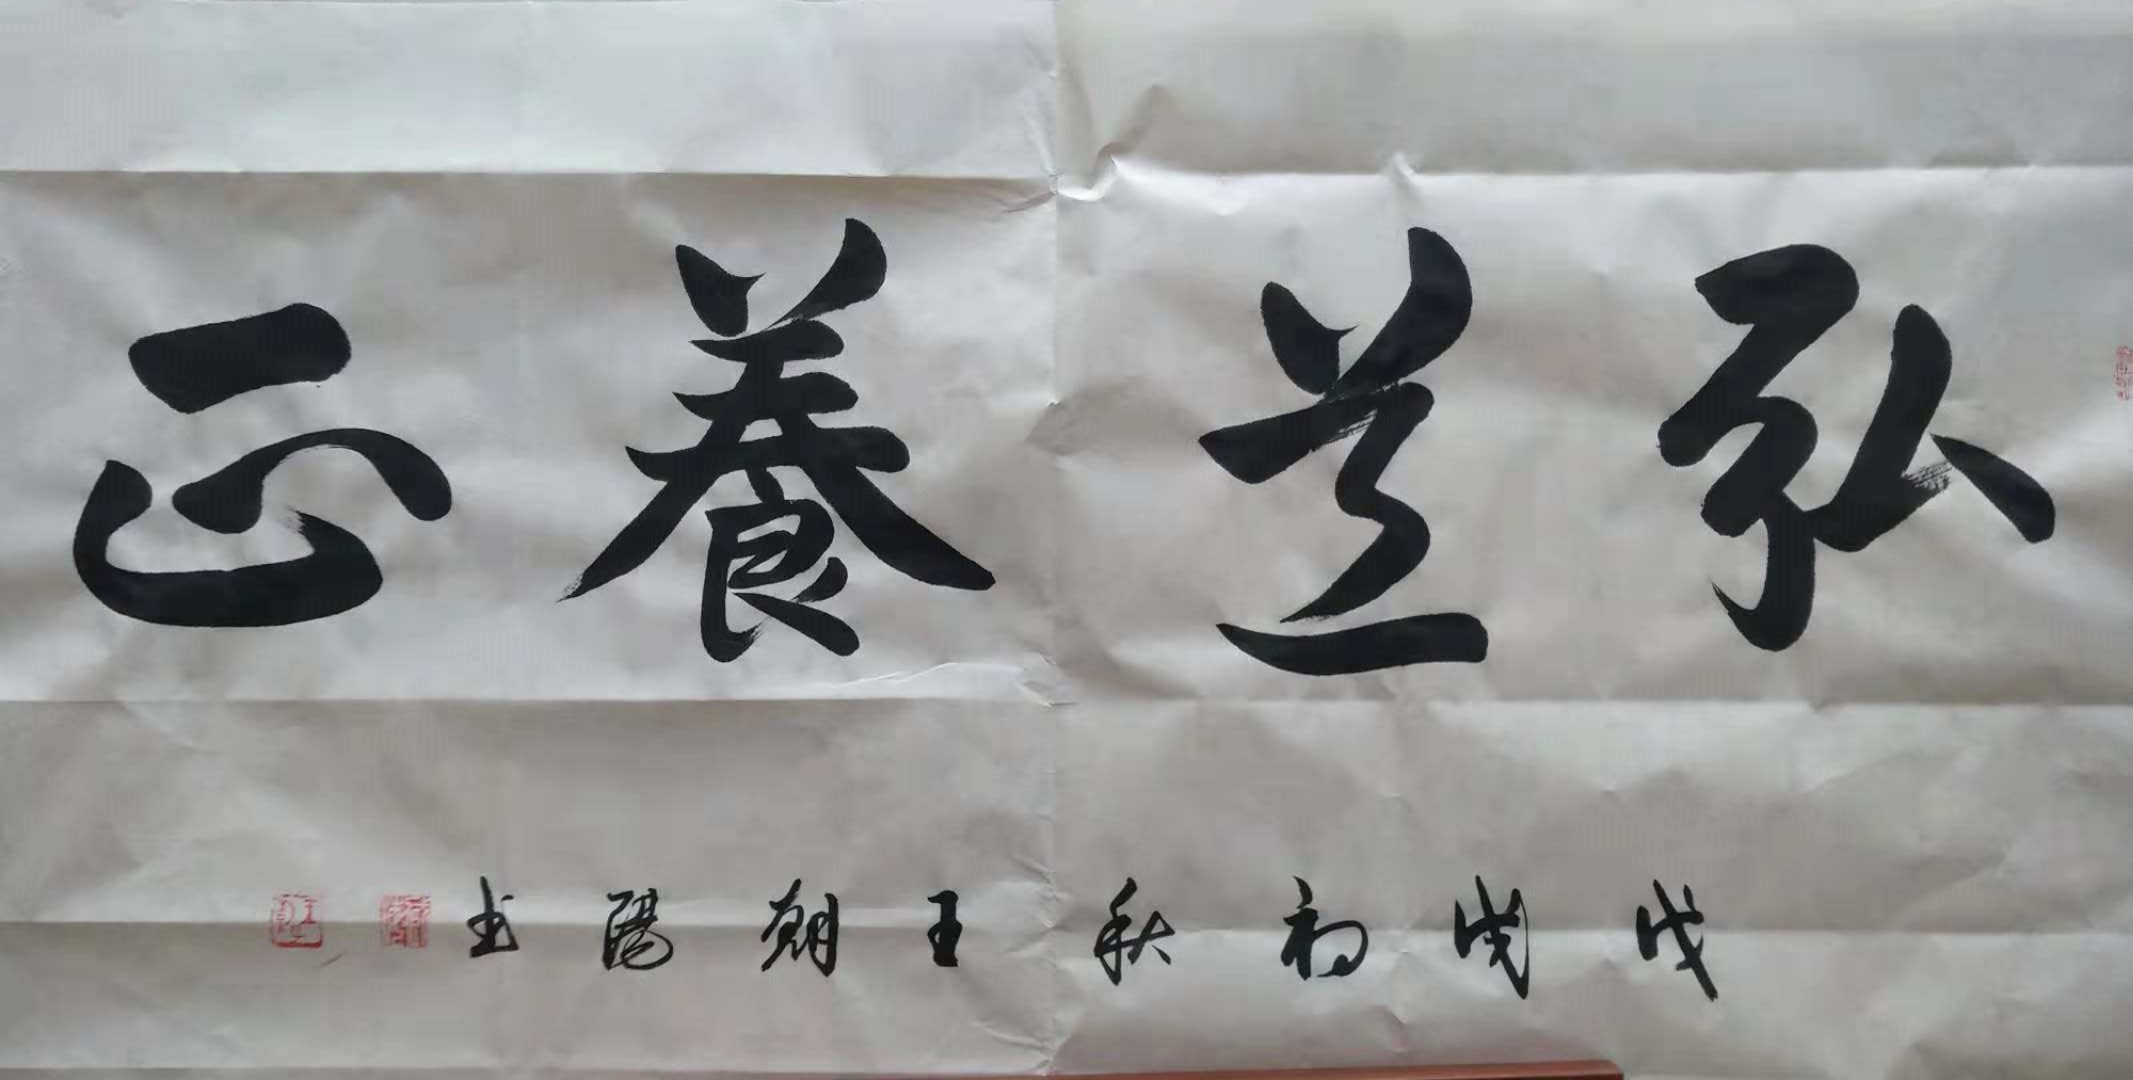 弘道養正
戊戌初秋王朝陽书